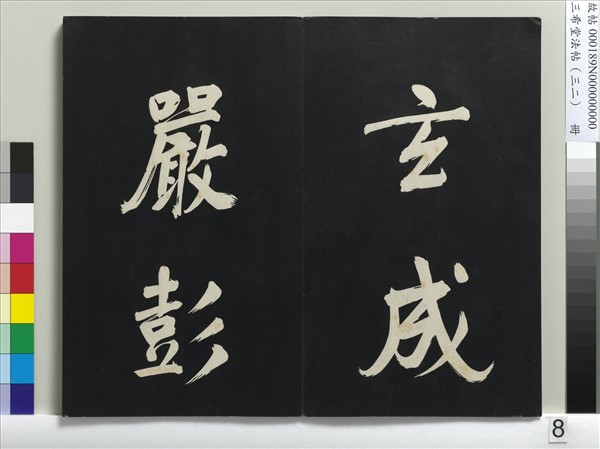 玄成
嚴彭
故帖 000189N000000000
三希堂法帖（三二） 冊
8